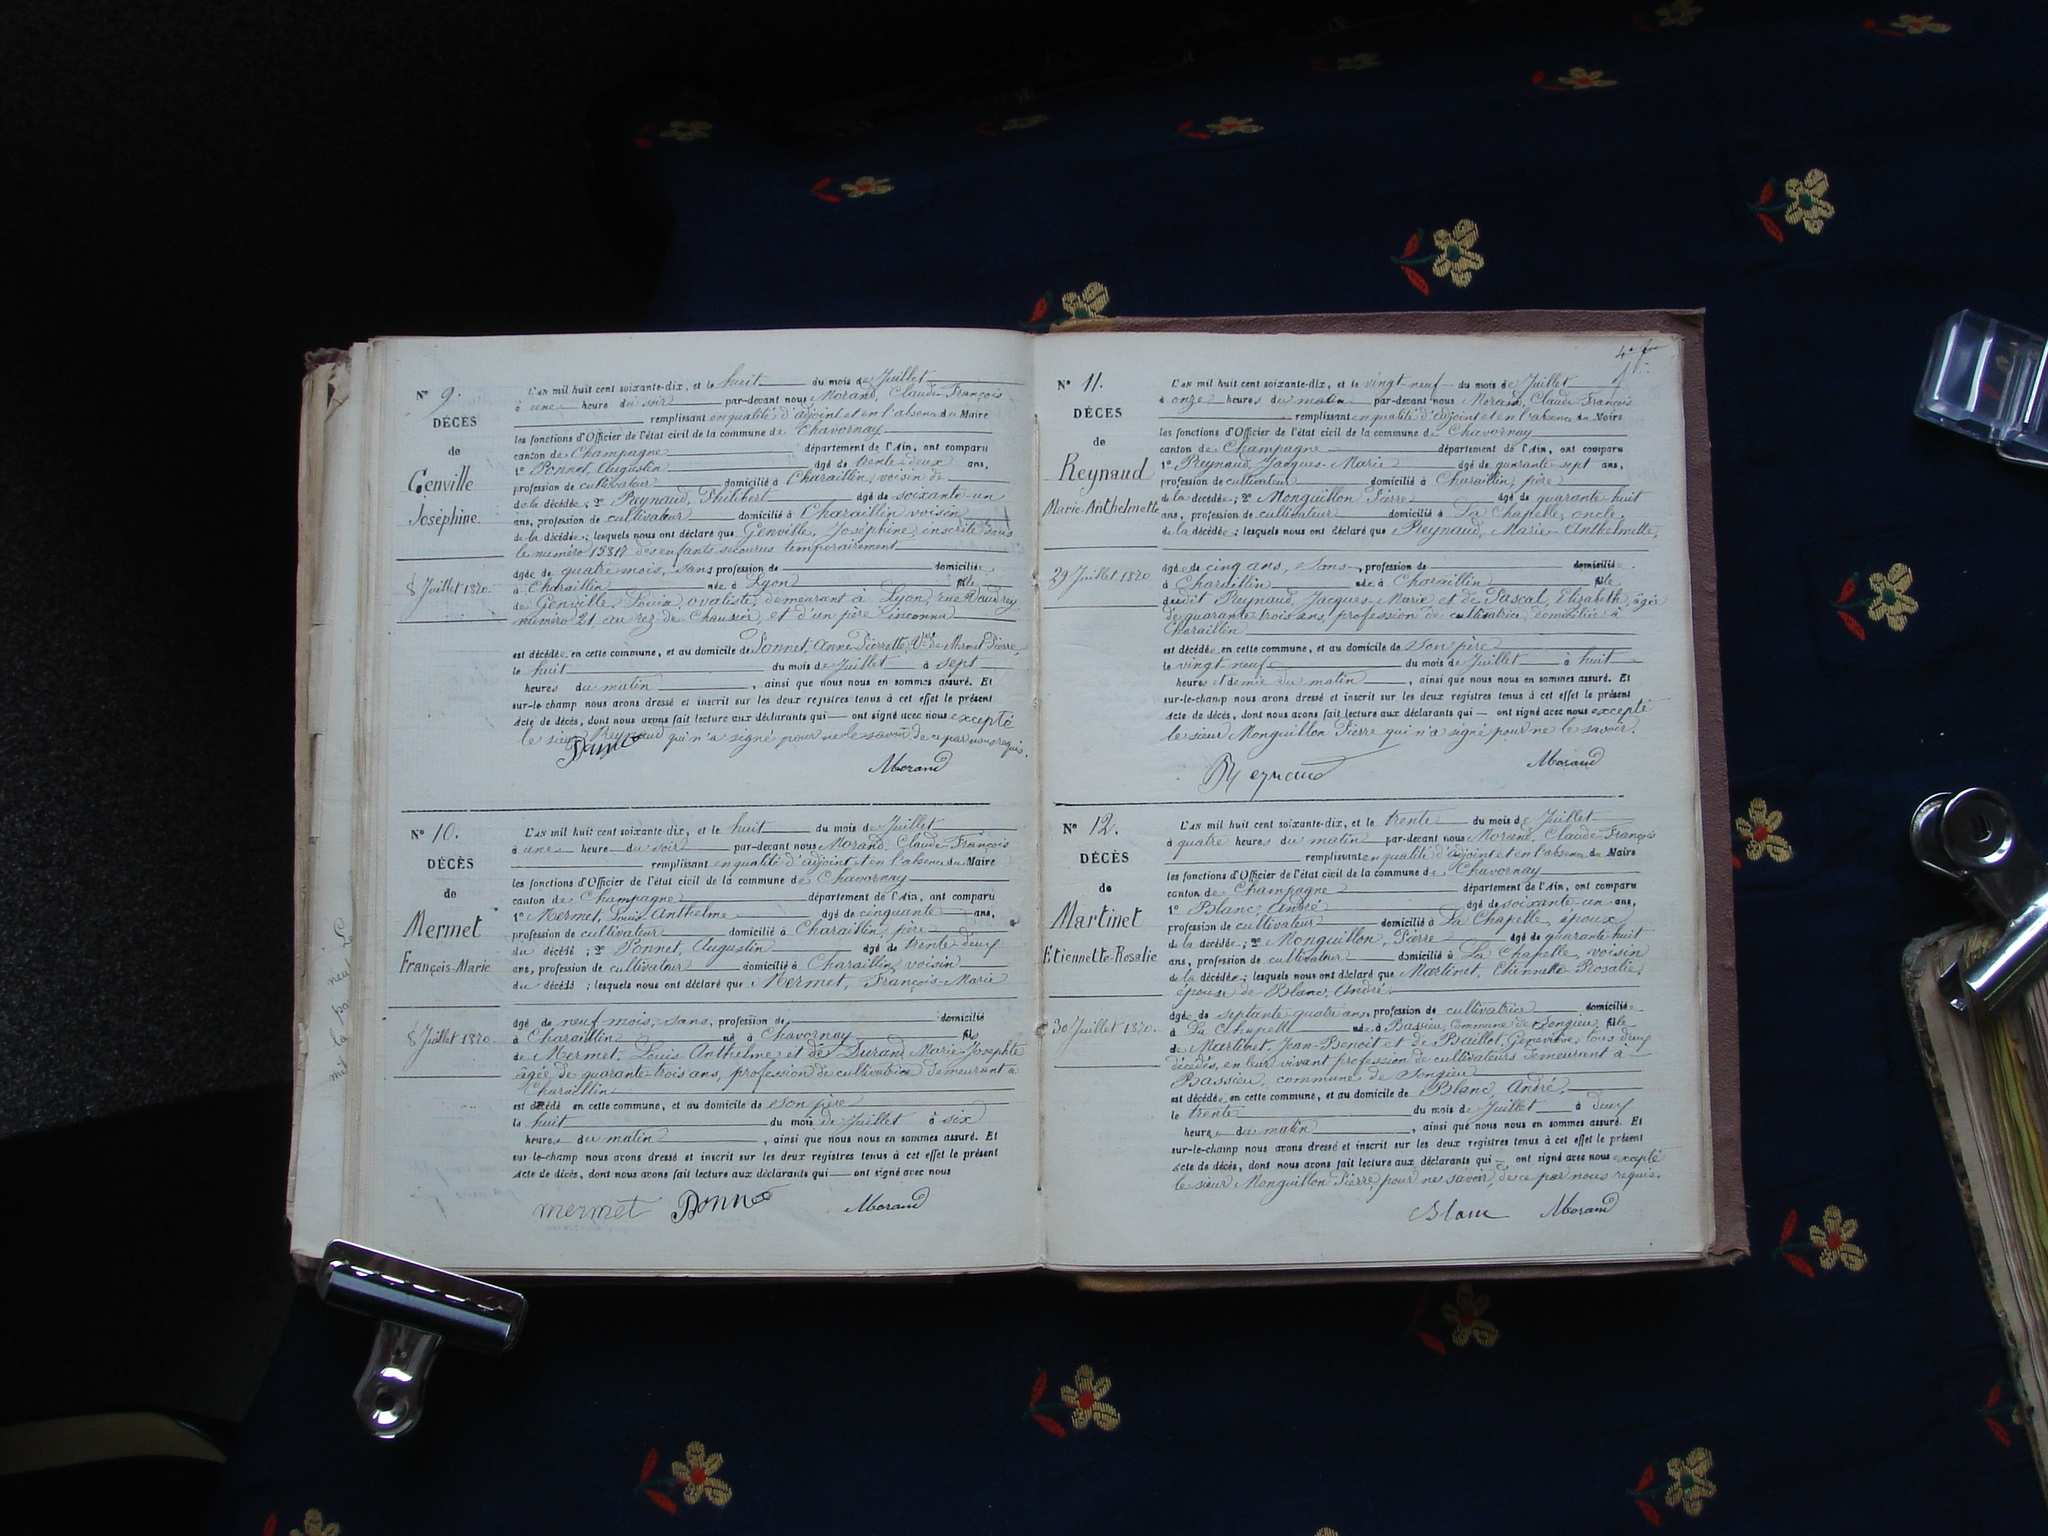 N° 9.
DÉCÈS
de
Genville
Joséphine.
8 Juillet 1870.
L'AN mil huit cent soixante-dix, et le huit du mois de Juillet
à une heure du soir par-devant nous Morand, Claude-François
remplissant en qualité d'adjoint et en l'absence du Maire
les fonctions d'Officier de l'état civil de la commune de Chavornay
canton de Champagne département de l'Ain, ont comparu
1° Ponnet, Augustin âgé de trente-deux ans,
profession de cultivateur domicilié à Charaillin, voisin de
de la décédée; 2° Reynaud, Philibert âgé de soixante-un
ans, profession de cultivateur domicilié à Charaillin voisin
de la décédée; lesquels nous ont déclaré que Genville, Joséphine, inscrite sous
le numéro 15317 des enfants secourus temporairement
âgée de quatre mois, sans profession de domiciliée
à Charaillin née à Lyon fille
de Genville, Louise, ovaliste, demeurant à Lyon, rue
numéro 21 au rez de Chaussée, et d'un père inconnu
est décédée en cette commune, et au domicile de Ponnet, Anne-Pierrette, Vve de Mermet Pierre,
le huit du mois de Juillet à sept
heures du matin, ainsi que nous nous en sommes assuré. Et
sur-le-champ nous avons dressé et inscrit sur les deux registres tenus à cet effet le présent
acte de décès, dont nous avons fait lecture aux déclarants qui ont signé avec nous excepté
le sieur Reynaud qui n'a signé pour ne le savoir de ce par nous requis.
Morand
N° 10.
DÉCÈS
de
Mermet
François-Marie
8 Juillet 1870.
L'AN mil huit cent soixante-dix, et le huit du mois de Juillet
à une heure du soir par-devant nous Morand, Claude-François
remplissant en qualité d'adjoint et en l'absence du Maire
les fonctions d'Officier de l'état civil de la commune de Chavornay
canton de Champagne département de l'Ain, ont comparu
1° Mermet, Louis-Anthelme âgé de cinquante ans,
profession de cultivateur domicilié à Charaillin, père
du décédé; 2° Ponnet, Augustin âgé de trente deux
ans, profession de cultivateur domicilié à Charaillin, voisin
du décédé; lesquels nous ont déclaré que Mermet, François-Marie
âgé de neuf mois, sans, profession de domicilié
à Charaillin né à Chavornay fils
de Mermet, Louis Anthelme et de Durand Marie-Josephte
âgée de quarante-trois ans, profession de cultivatrice demeurant à
Charaillin
est décédé en cette commune, et au domicile de son père
le huit du mois de Juillet à six
heures du matin, ainsi que nous nous en sommes assuré. Et
sur-le-champ nous avons dressé et inscrit sur les deux registres tenus à cet effet le présent
acte de décès, dont nous avons fait lecture aux déclarants qui ont signé avec nous
mermet Ponnet Morand
N° 11.
DÉCÈS
de
Reynaud
Marie-Anthelmette
29 Juillet 1870
L'AN mil huit cent soixante-dix, et le vingt-neuf du mois de Juillet
à onze heures du matin par-devant nous Morand, Claude-François
remplissant en qualité d'adjoint et en l'absence du Maire
les fonctions d'Officier de l'état civil de la commune de Chavornay
canton de Champagne département de l'Ain, ont comparu
1° Reynaud, Jacques-Marie âgé de quarante-sept ans,
profession de cultivateur domicilié à Charaillin, père
de la décédée; 2° Monguillon, Pierre âgé de quarante huit
ans, profession de cultivateur domicilié à La Chapelle, oncle
de la décédée; lesquels nous ont déclaré que Reynaud, Marie-Anthelmette,
âgée de cinq ans, sans, profession de domiciliée
à Charaillin née à Charaillin fille
du dit Reynaud, Jacques-Marie et de Pascal, Elizabeth, âgée
de quarante trois ans, profession de cultivatrice, domiciliée à
Charaillin
est décédée en cette commune, et au domicile de son père
le vingt neuf du mois de Juillet à huit
heures et demie du matin, ainsi que nous nous en sommes assuré. Et
sur-le-champ nous avons dressé et inscrit sur les deux registres tenus à cet effet le présent
acte de décès, dont nous avons fait lecture aux déclarants qui ont signé avec nous excepté
le sieur Monguillon Pierre qui n'a signé pour ne le savoir.
Reynaud Morand
N° 12.
DÉCÈS
de
Martinet
Etiennette-Rosalie
30 Juillet 1870.
L'AN mil huit cent soixante-dix, et le trente du mois de Juillet
à quatre heures du matin par-devant nous Morand, Claude-François
remplissant en qualité d'adjoint et en l'absence du Maire
les fonctions d'Officier de l'état civil de la commune de Chavornay
canton de Champagne département de l'Ain, ont comparu
1° Blanc, André âgé de soixante-un ans,
profession de cultivateur domicilié à La Chapelle, époux
de la décédée; 2° Monguillon, Pierre âgé de quarante-huit
ans, profession de cultivateur domicilié à La Chapelle, voisin
de la décédée; lesquels nous ont déclaré que Martinet, Etiennette Rosalie,
épouse de Blanc, André.
âgée de septante quatre ans, profession de cultivatrice domiciliée
à La Chapelle née à Bassieu, Commune de Songieu, fille
de Martinet, Jean-Benoit et de Baillot, Geneviève, tous deux
décédés, en leur vivant profession de cultivateurs demeurant à
Bassieu, commune de Songieu
est décédée en cette commune, et au domicile de Blanc, André.
le trente du mois de Juillet à deux
heures du matin, ainsi que nous nous en sommes assuré. Et
sur-le-champ nous avons dressé et inscrit sur les deux registres tenus à cet effet le présent
acte de décès, dont nous avons fait lecture aux déclarants qui ont signé avec nous excepté
le sieur Monguillon Pierre, pour ne savoir, de ce par nous requis.
Blanc Morand